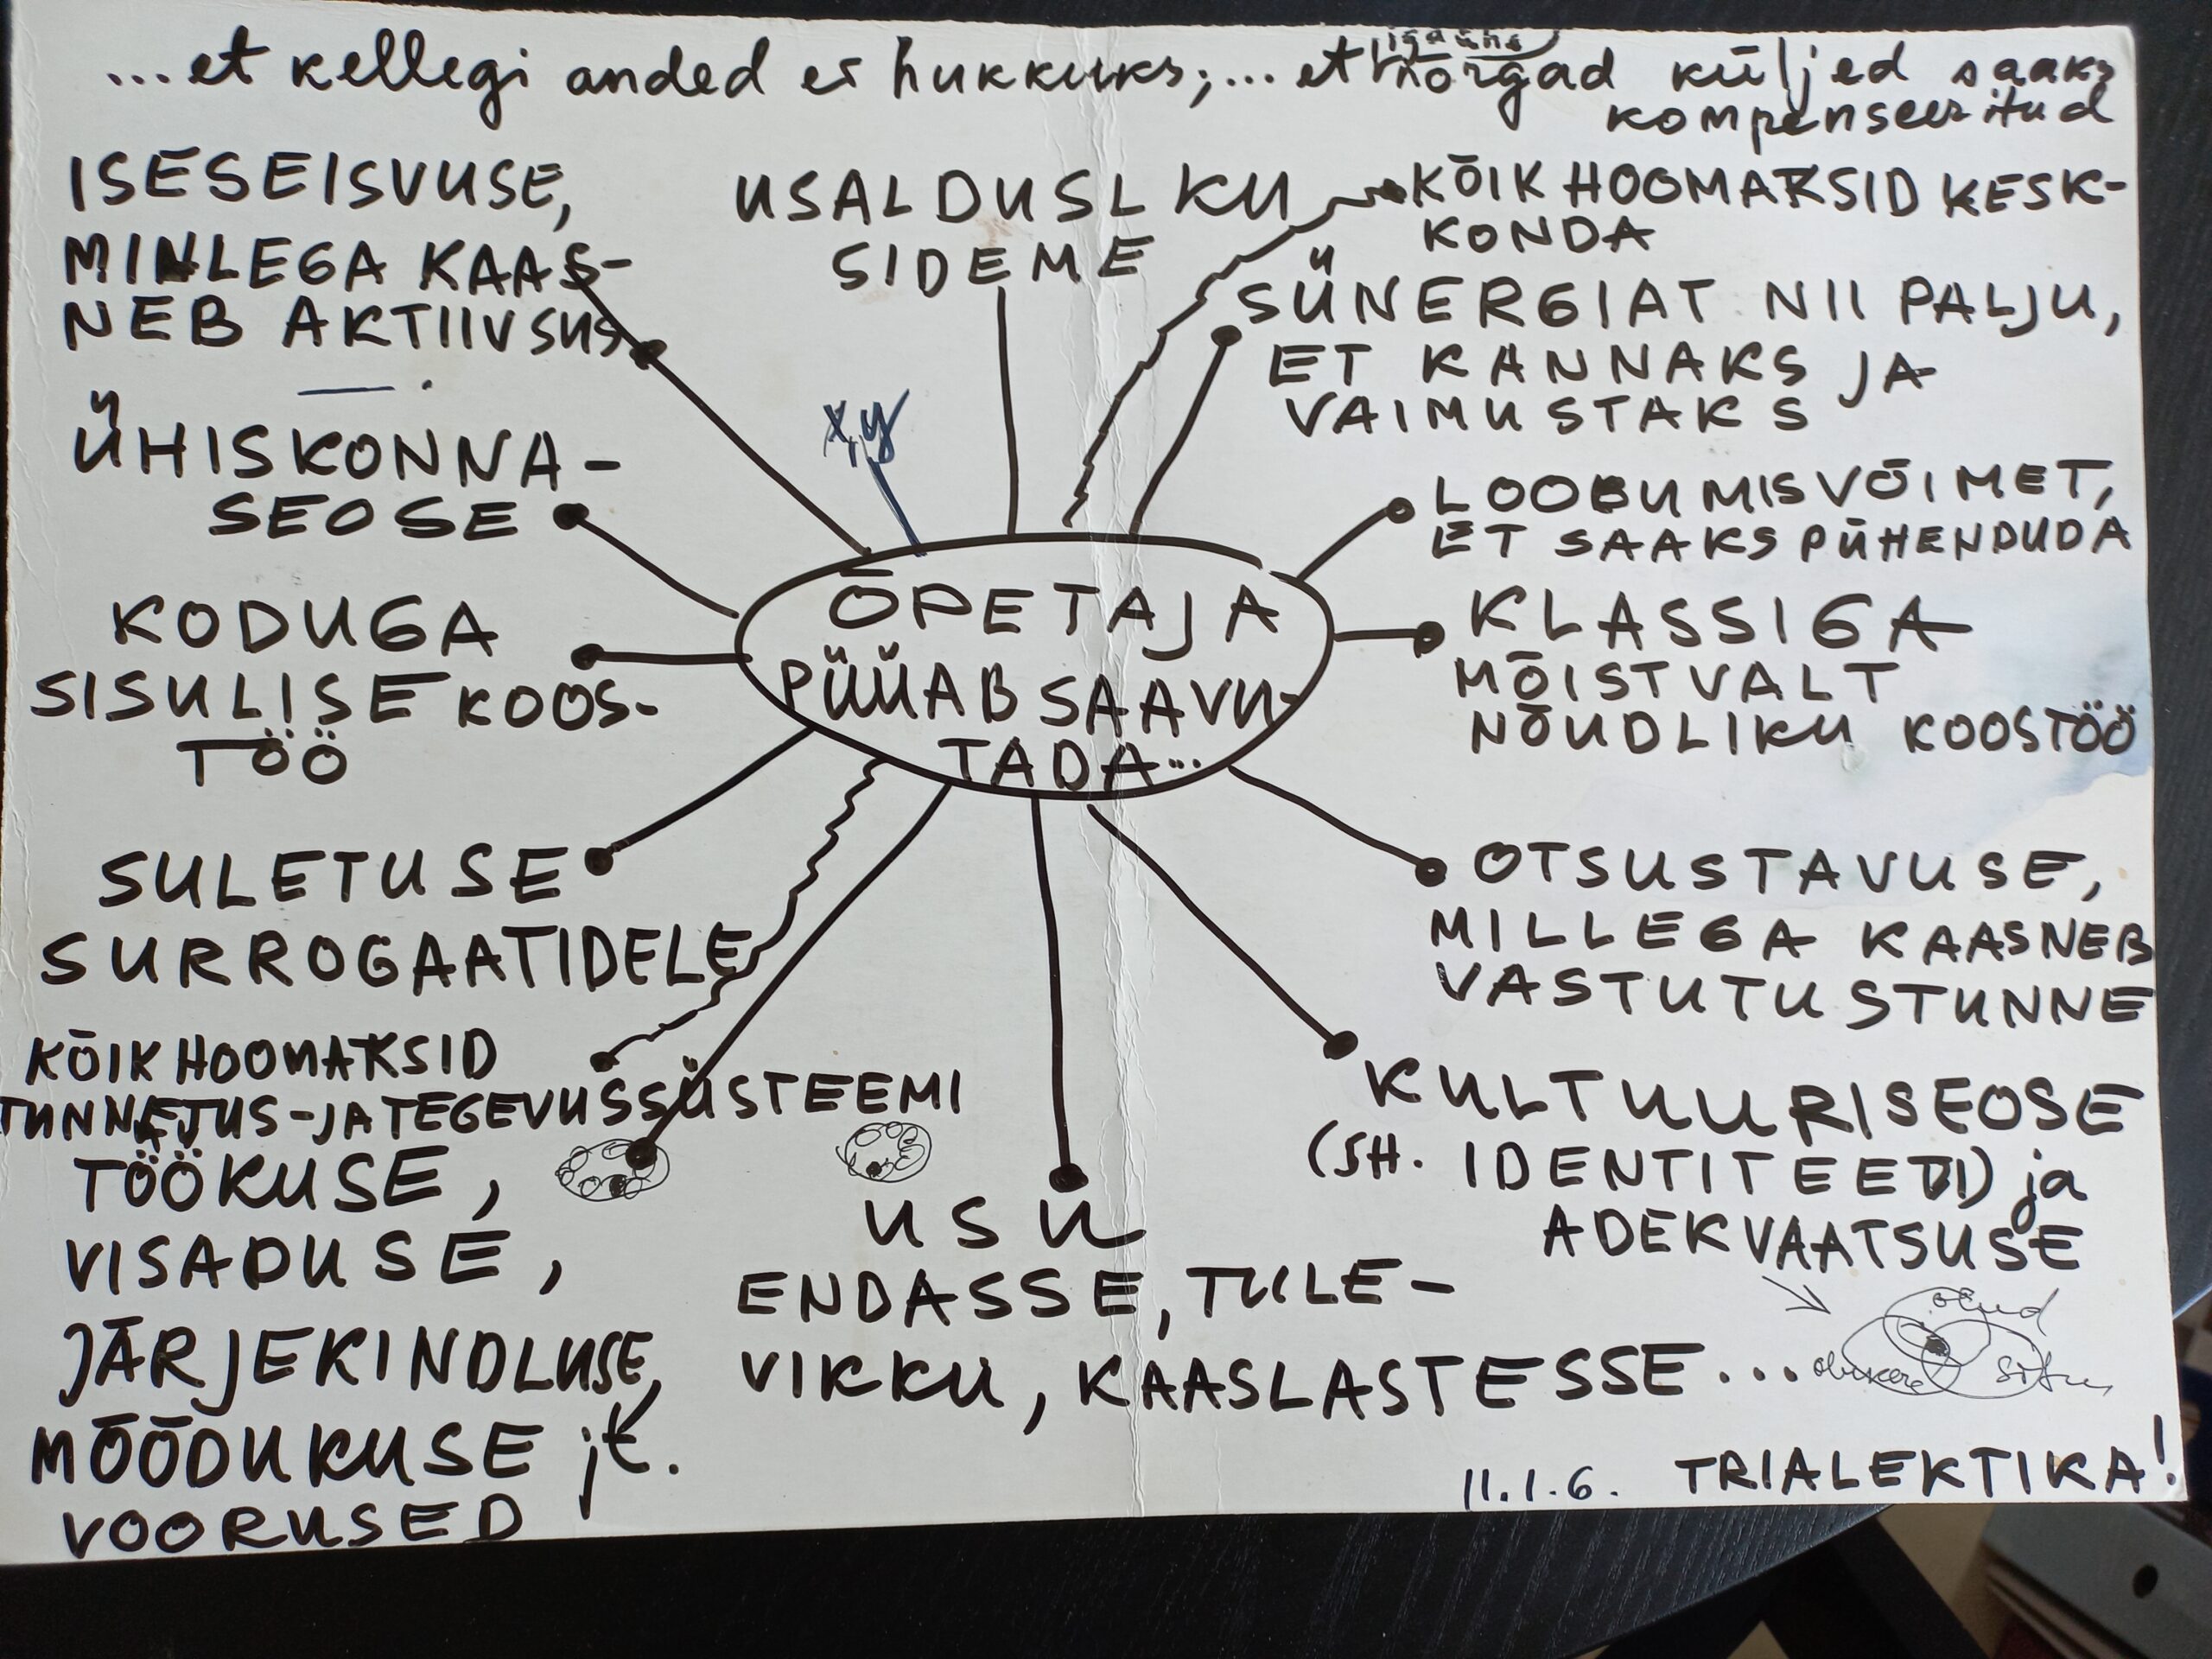 ...et kellegi anded ei hukkuks;... et igaühe nõrgad küljed saaks
kompenseeritud
ISESEISVUSE,
MILLEGA KAAS-
NEB AKTIIVSUS
USALDUSLKU
SIDEME
KÕIK HOOMAKSID KESK-
KONDA
SÜNERGIAT NII PALJU,
ET KANNAKS JA
VAIMUSTAKS
x,y
ÜHISKONNA-
SEOSE
LOOBUMISVÕIMET,
ET SAAKS PÜHENDUDA
ÕPETAJA
PÜÜAB SAAVU-
TADA...
KODUGA
SISULISE KOOS-
TÖÖ
KLASSIGA
MÕISTVALT
NÕUDLIKU KOOSTÖÖ
SULETUSE
SURROGAATIDELE
OTSUSTAVUSE,
MILLEGA KAASNEB
VASTUTUSTUNNE
KÕIK HOOMAKSID
TUNNETUS-JA TEGEVUSSÜSTEEMI
TÖÖKUSE,
VISADUSE,
JÄRJEKINDLUSE,
MÕÕDUKUSE jt.
VOORUSED
USU
ENDASSE, TULE-
VIKKU, KAASLASTESSE...
KULTUURISEOSE
(SH. IDENTITEEDI) ja
ADEKVAATSUSE
olud
11.1.6. TRIALEKTIKA!